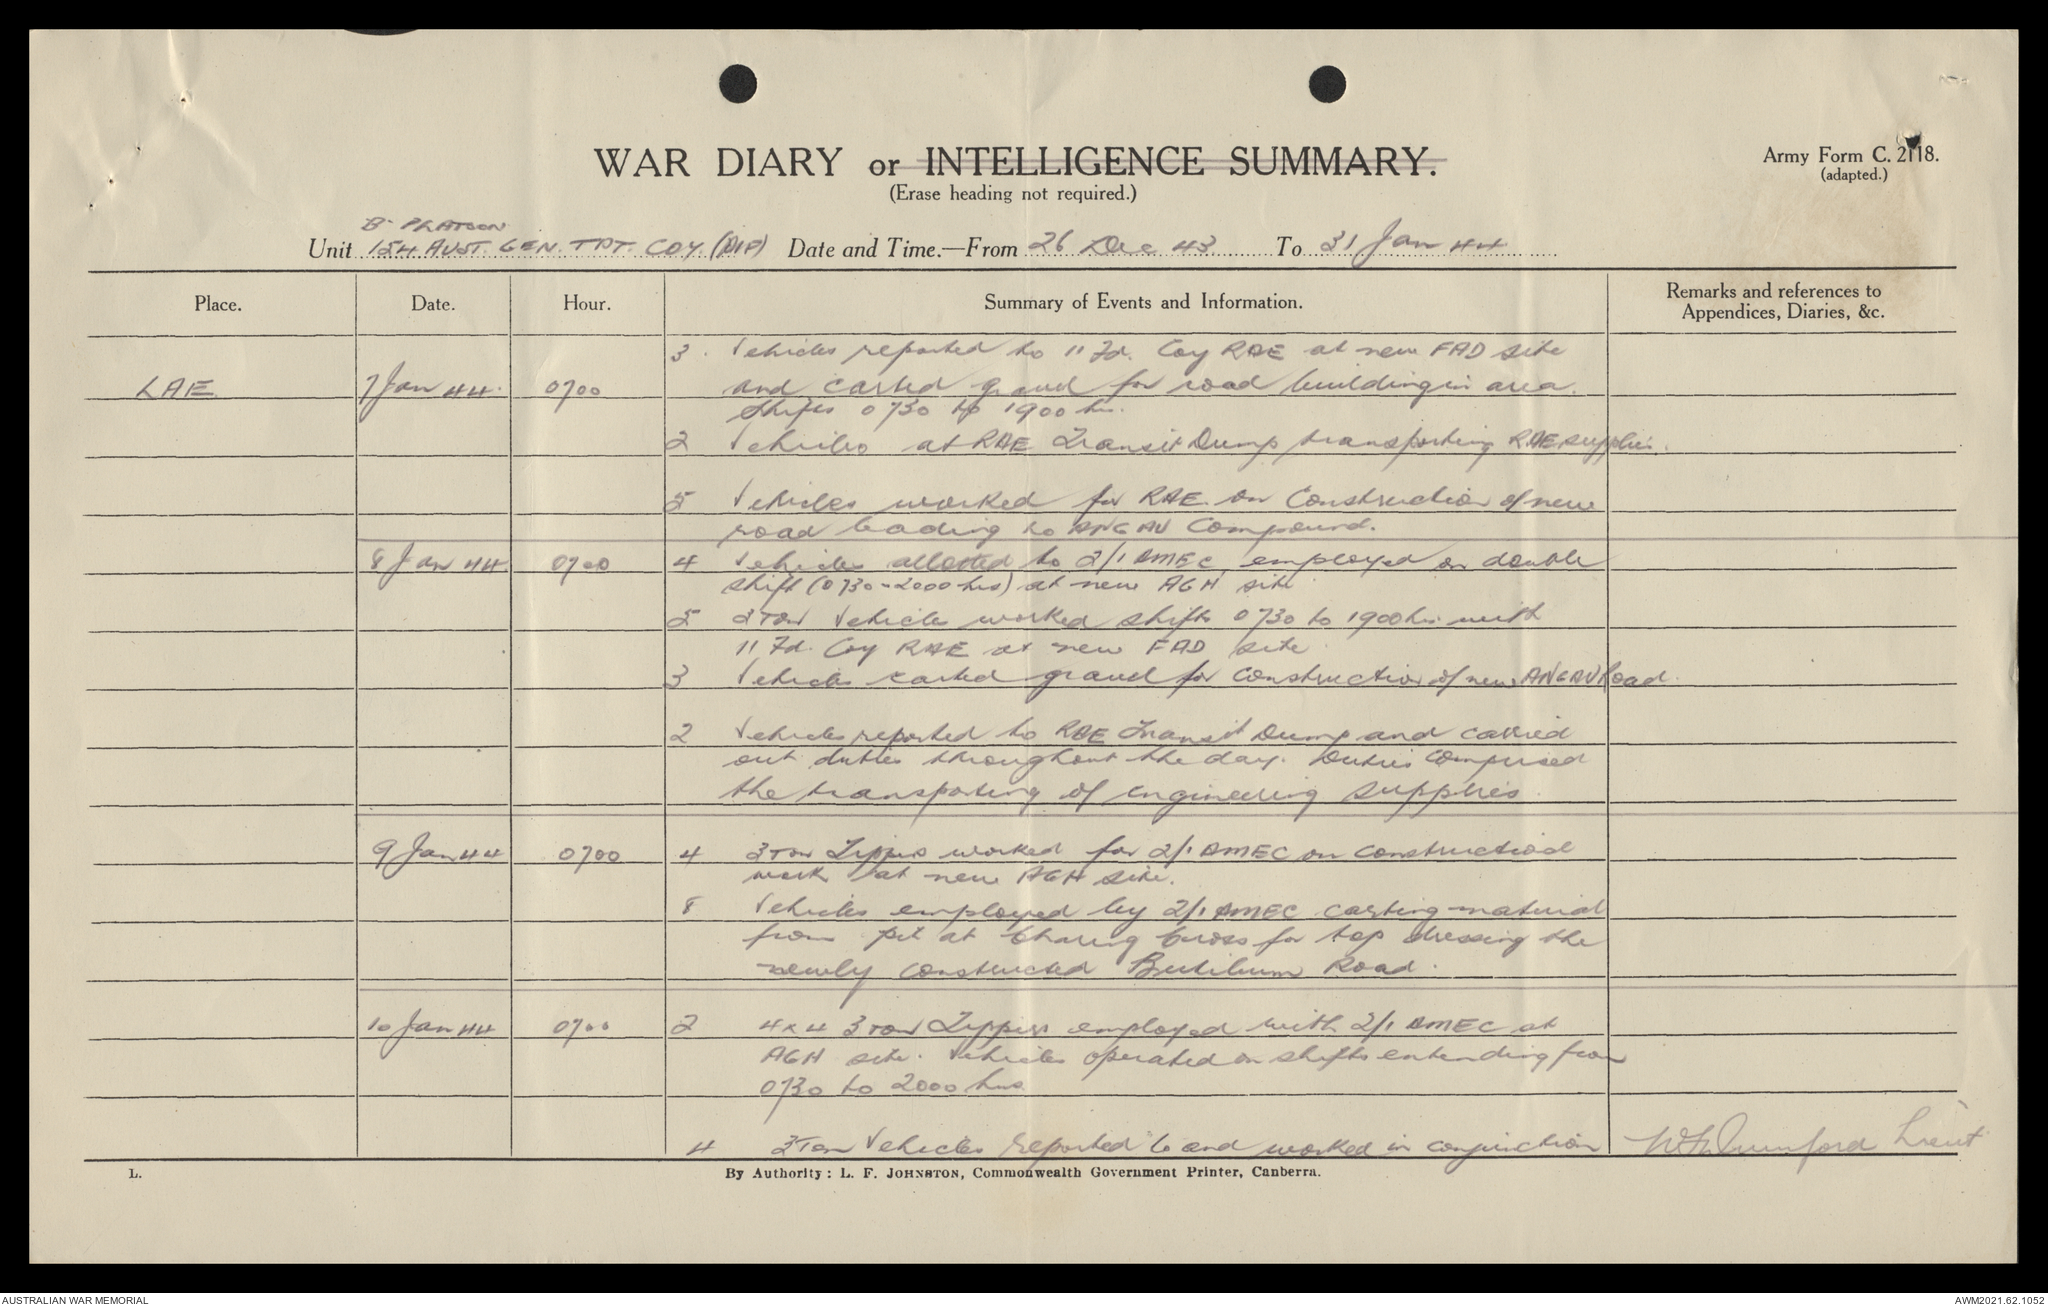 WAR DIARY or INTELLIGENCE SUMMARY.
(Erase heading not required.)
Army Form C. 2118.
(adapted.)
B PLATOON
Unit 154 AUST. GEN. TPT. COY. (AIF) Date and Time.—From 26 Dec 43 To 31 Jan 44
Place.
Date.
Hour.
Summary of Events and Information.
Remarks and references to
Appendices, Diaries, &c.
3 Vehicles reported to 11 Fd. Coy RAE at new FAD site
LAE 7 Jan 44. 0700 and carted gravel for road building in area.
Shifts 0730 to 1900 hrs.
2 Vehicles at RAE Transit Dump transporting RAE supplies.
5 Vehicles worked for RAE on Construction of new
road leading to ANGAU Compound.
8 Jan 44. 0700 4 Vehicles allotted to 2/1 AMEC employed on double
shift (0730-2000 hrs) at new AGH site
5 3 Ton Vehicles worked shifts 0730 to 1900 hrs with
11 Fd. Coy RAE at new FAD site
3 Vehicles carted gravel for construction of new ANGAU Road.
2 Vehicles reported to RAE Transit Dump and carried
out duties throughout the day. Duties comprised
the transporting of engineering supplies.
9 Jan 44 0700 4 3 Ton Tippers worked for 2/1 AMEC on construction
work at new AGH site.
8 Vehicles employed by 2/1 AMEC carting material
from pit at Charing Cross for top dressing the
newly constructed Butibum Road.
10 Jan 44 0700 2 4x4 3 Ton Tippers employed with 2/1 AMEC at
AGH site. Vehicles operated on shifts extending from
0730 to 2000 hrs
4 3 Ton Vehicles reported to and worked in conjunction
Lieut
L.
By Authority: L. F. JOHNSTON, Commonwealth Government Printer, Canberra.
AUSTRALIAN WAR MEMORIAL
AWM2021.62.1052